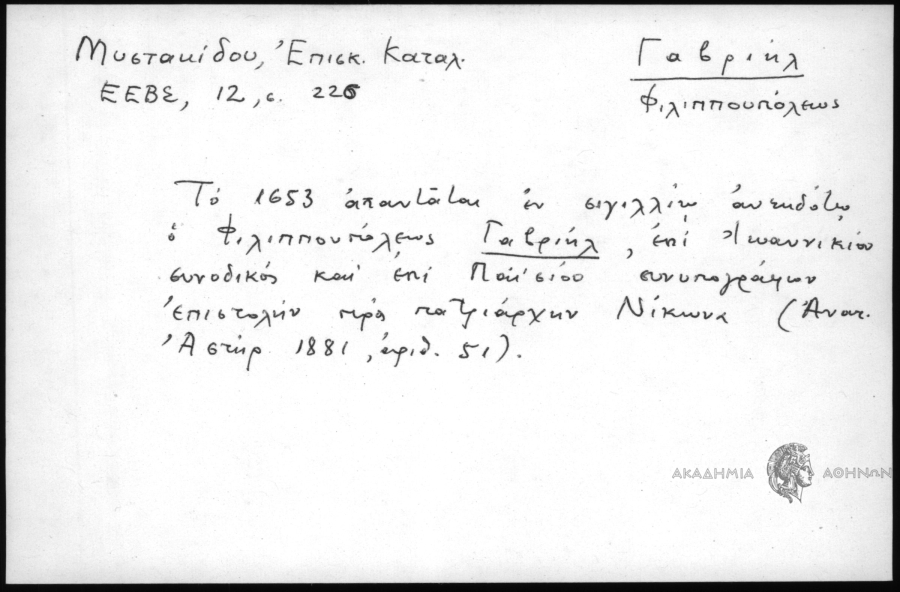 Μυστακίδου, Ἐπισκ. Καταλ.
ΕΕΒΣ, 12, σ. 226
Γαβριήλ
Φιλιππουπόλεως
Τό 1653 ἀπαντᾶται ἐν σιγιλλίῳ ἀνεκδότῳ
ὁ Φιλιππουπόλεως Γαβριήλ, ἐπί Ἰωαννικίου
συνοδικός καί ἐπί Παϊσίου συνυπογράφων
ἐπιστολήν πρός πατριάρχην Νίκωνα (Ἀνατ.
Ἀστήρ 1881, ἀριθ. 51).
ΑΚΑΔΗΜΙΑ ΑΘΗΝΩΝ